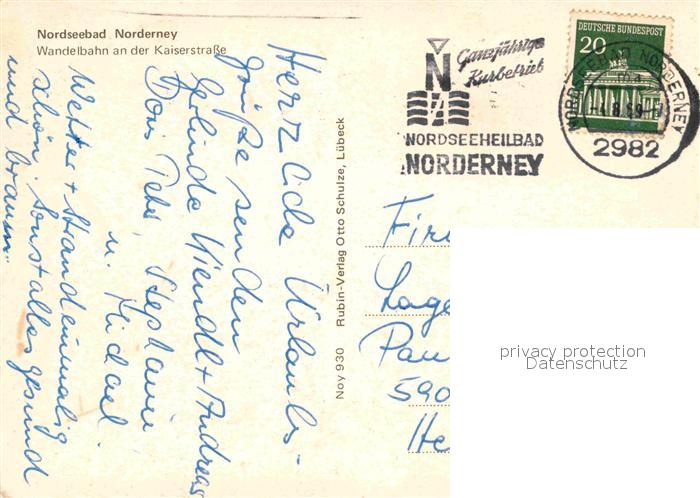 Nordseebad Norderney
Wandelbahn an der Kaiserstraße
Herzliche Urlaubs-
grüße senden
Gerlinde Wiendl + Andreas
Doris Peter Stephanie
u. Michael.
Wetter + Strand einmalig
schön. Sonst alles gesund
und braun
Nov 930 Rubin-Verlag Otto Schulze, Lübeck
N
Ganzjähriger
Kurbetrieb
NORDSEEHEILBAD
NORDERNEY
DEUTSCHE BUNDESPOST
20
NORDSEEBAD NORDERNEY
2982
Fir
Lage
Pau
590
He
privacy protection
Datenschutz